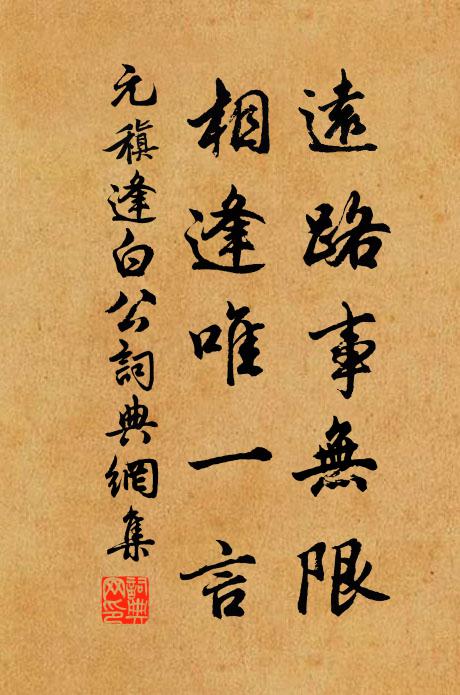 遠路事無限
相逢唯一言
元稹逢白公詞典網集
詞典
网印